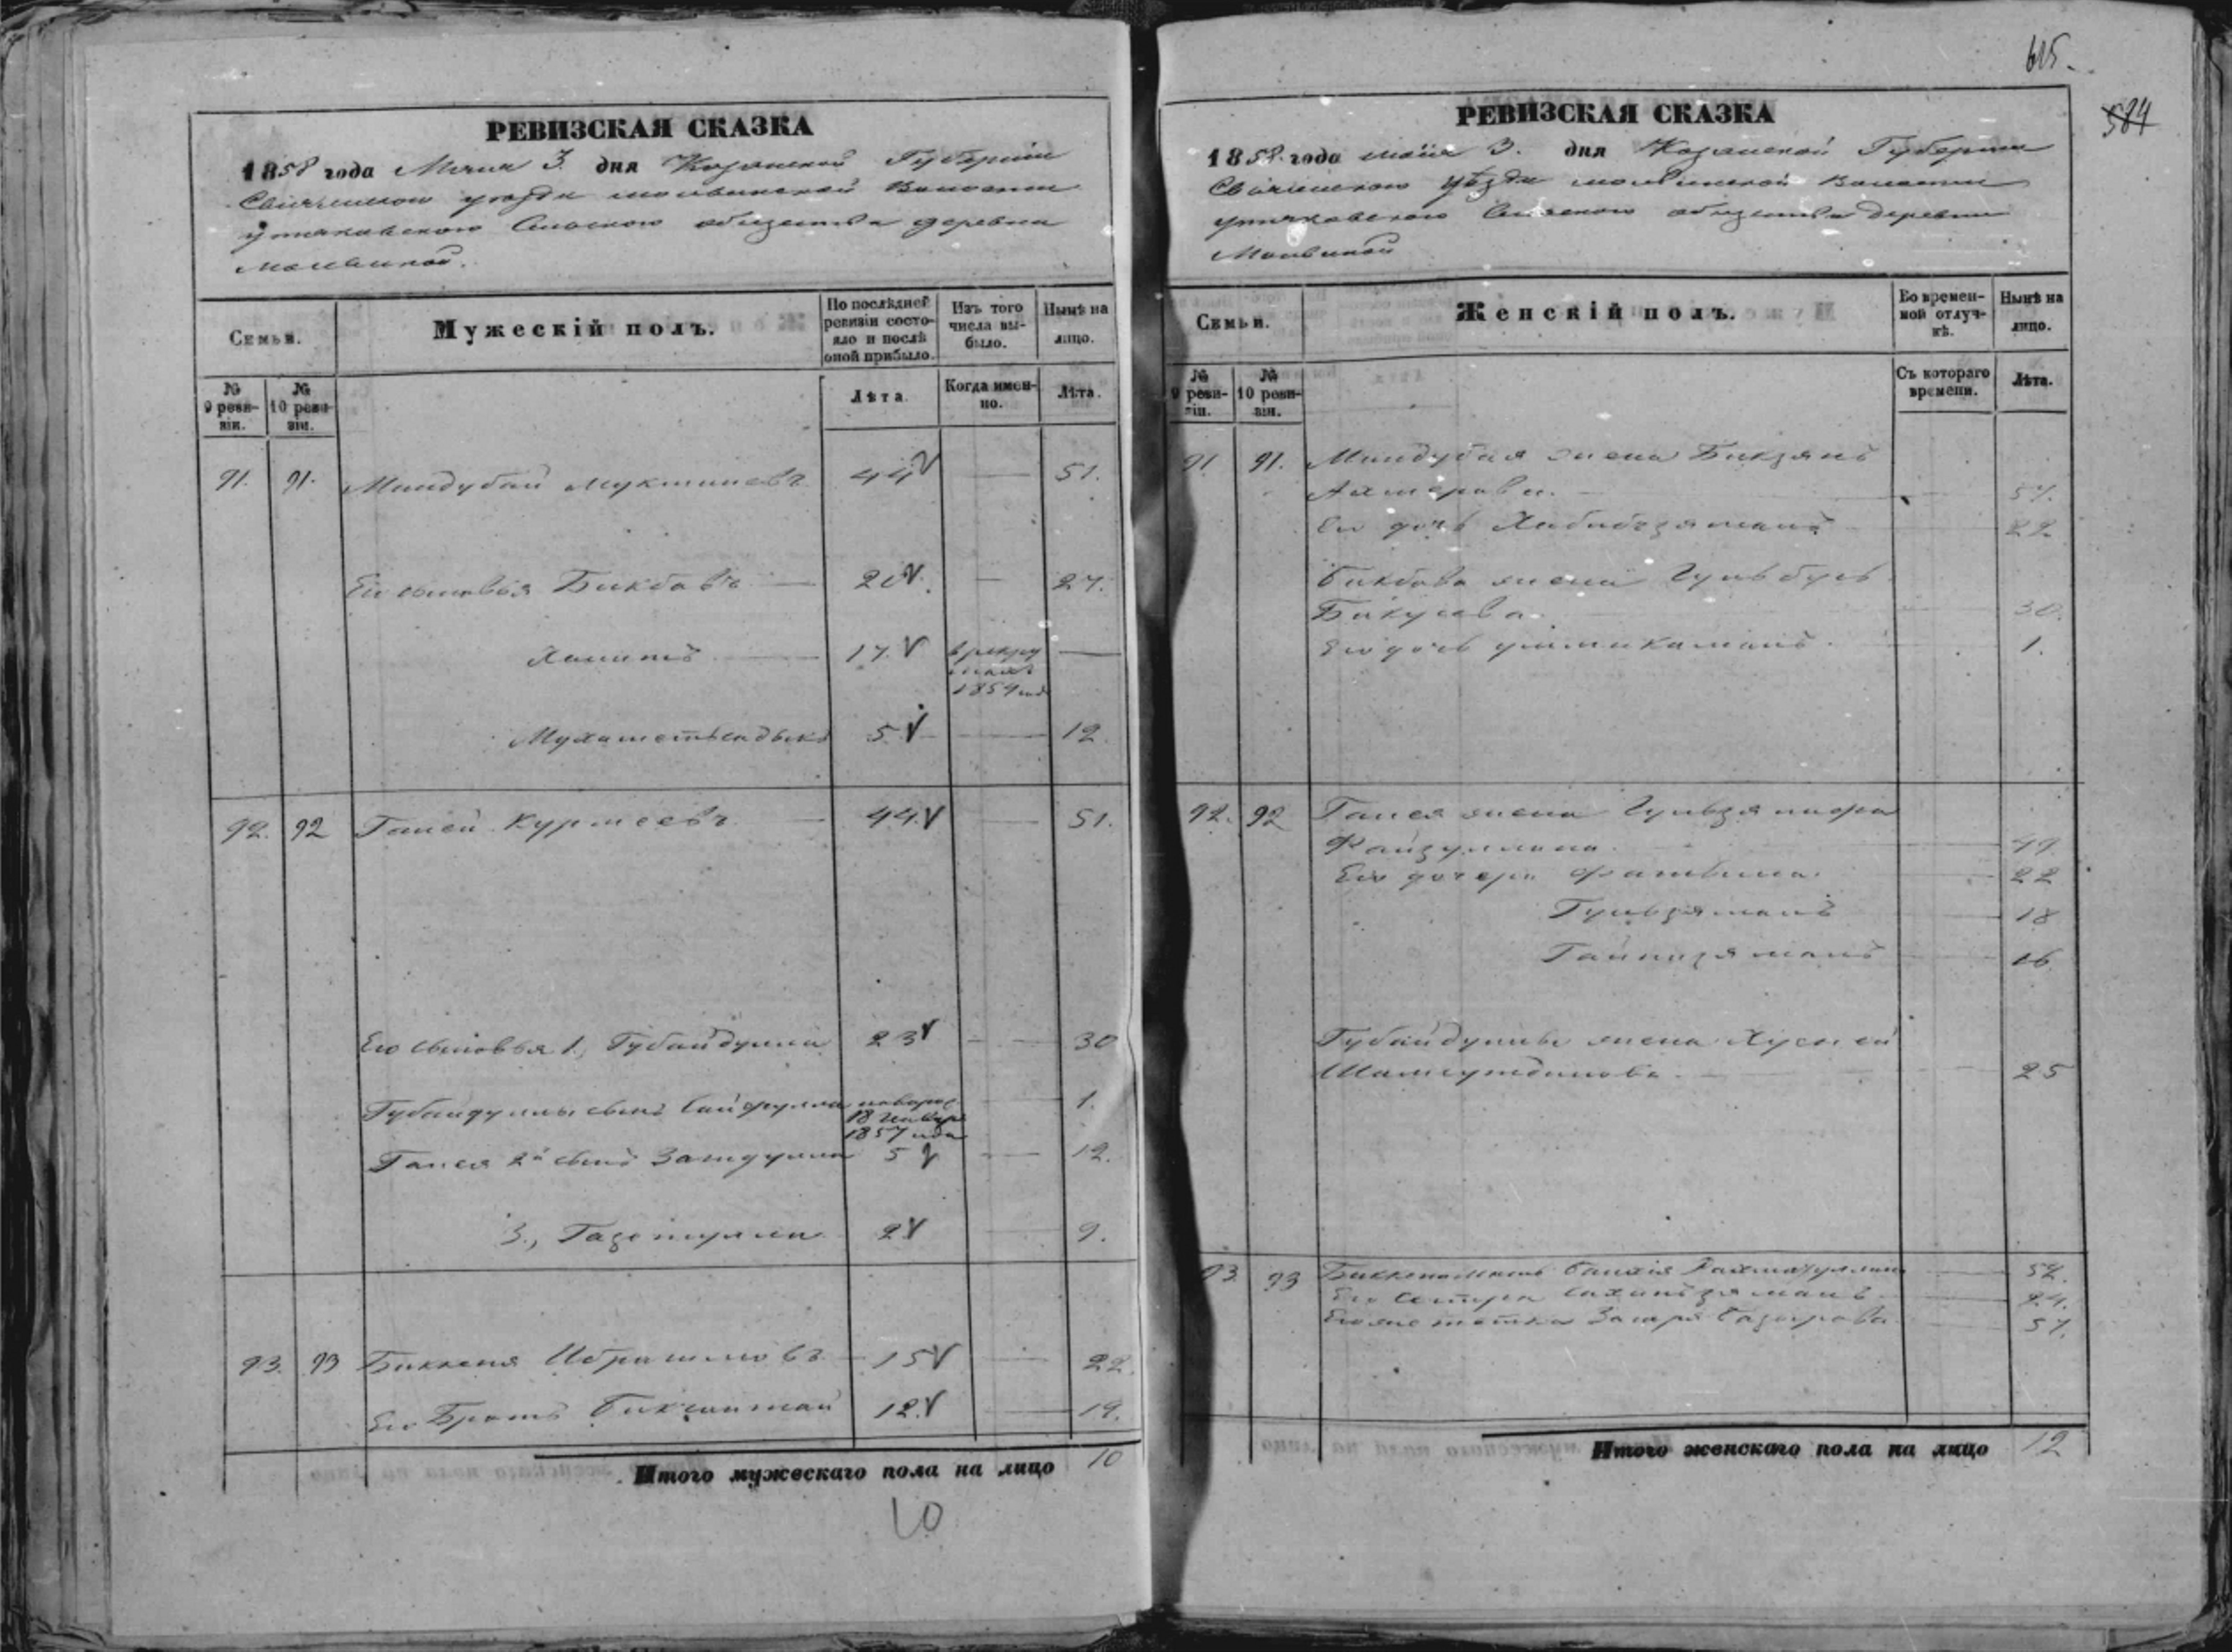 615.
584
РЕВИЗСКАЯ СКАЗКА
1858 года Маия 3 дня Казанской Губернии
Свияжского уезда Молвинской Волости
Утяковского Сельского общества деревни
Молвиной.
Семьи.
Мужескій полъ.
По послѣдней ревизіи состояло и послѣ оной прибыло.
Изъ того числа выбыло.
Нынѣ на лицо.
№ 9 ревизіи.
№ 10 ревизіи.
Лѣта.
Когда именно.
Лѣта.
91. 91. Миндубай Мукминевъ 44 — 51.
Его сыновья Бикбавъ — 20 — 27.
Хамитъ — 17. в рекруты 1854 года —
Мухаметьсадыкъ 5 — 12.
92. 92 Ганей Курмеевъ — 44. — 51.
Его сыновья 1, Губайдулла 23 — 30
Губайдуллы сынъ Сайфулла новорож. 18 Января 1857 года — 1.
Ганея 2й сынъ Замдулла 5 — 12.
3., Газетулла 2 — 9.
93. 93 Биккеня Ибрагимовъ — 15 — 22.
Его Братъ Бикчантай 12. — 19.
Итого мужескаго пола на лицо 10
10
РЕВИЗСКАЯ СКАЗКА
1858 года маия 3. дня Казанской Губернии
Свияжского уѣзда Молвинской Волости
Утяковского Сельского общества деревни
Молвиной
Семьи.
Женскій полъ.
Во временной отлучкѣ.
Нынѣ на лицо.
№ 9 ревизіи.
№ 10 ревизіи.
Съ котораго времени.
Лѣта.
91 91. Миндубая жена Бикзянъ
Ахмерова. — 57.
Его дочь Хабибзяманъ 22
Бикбава жена Гульбусь
Бикусева. 30.
Его дочь 1.
92. 92 Ганея жена Гульзянифа
Файзуллина. — 49
Его дочери Фатьима. — 22
Гульзяманъ — 18
Гайнизяманъ — 16
Губайдуллы жена Хусней
Шамсутдинова — 25
93. 93 мать Рахматуллина — 52.
Его сестра — 24.
Его же тетка — 57.
Итого женскаго пола на лицо 12